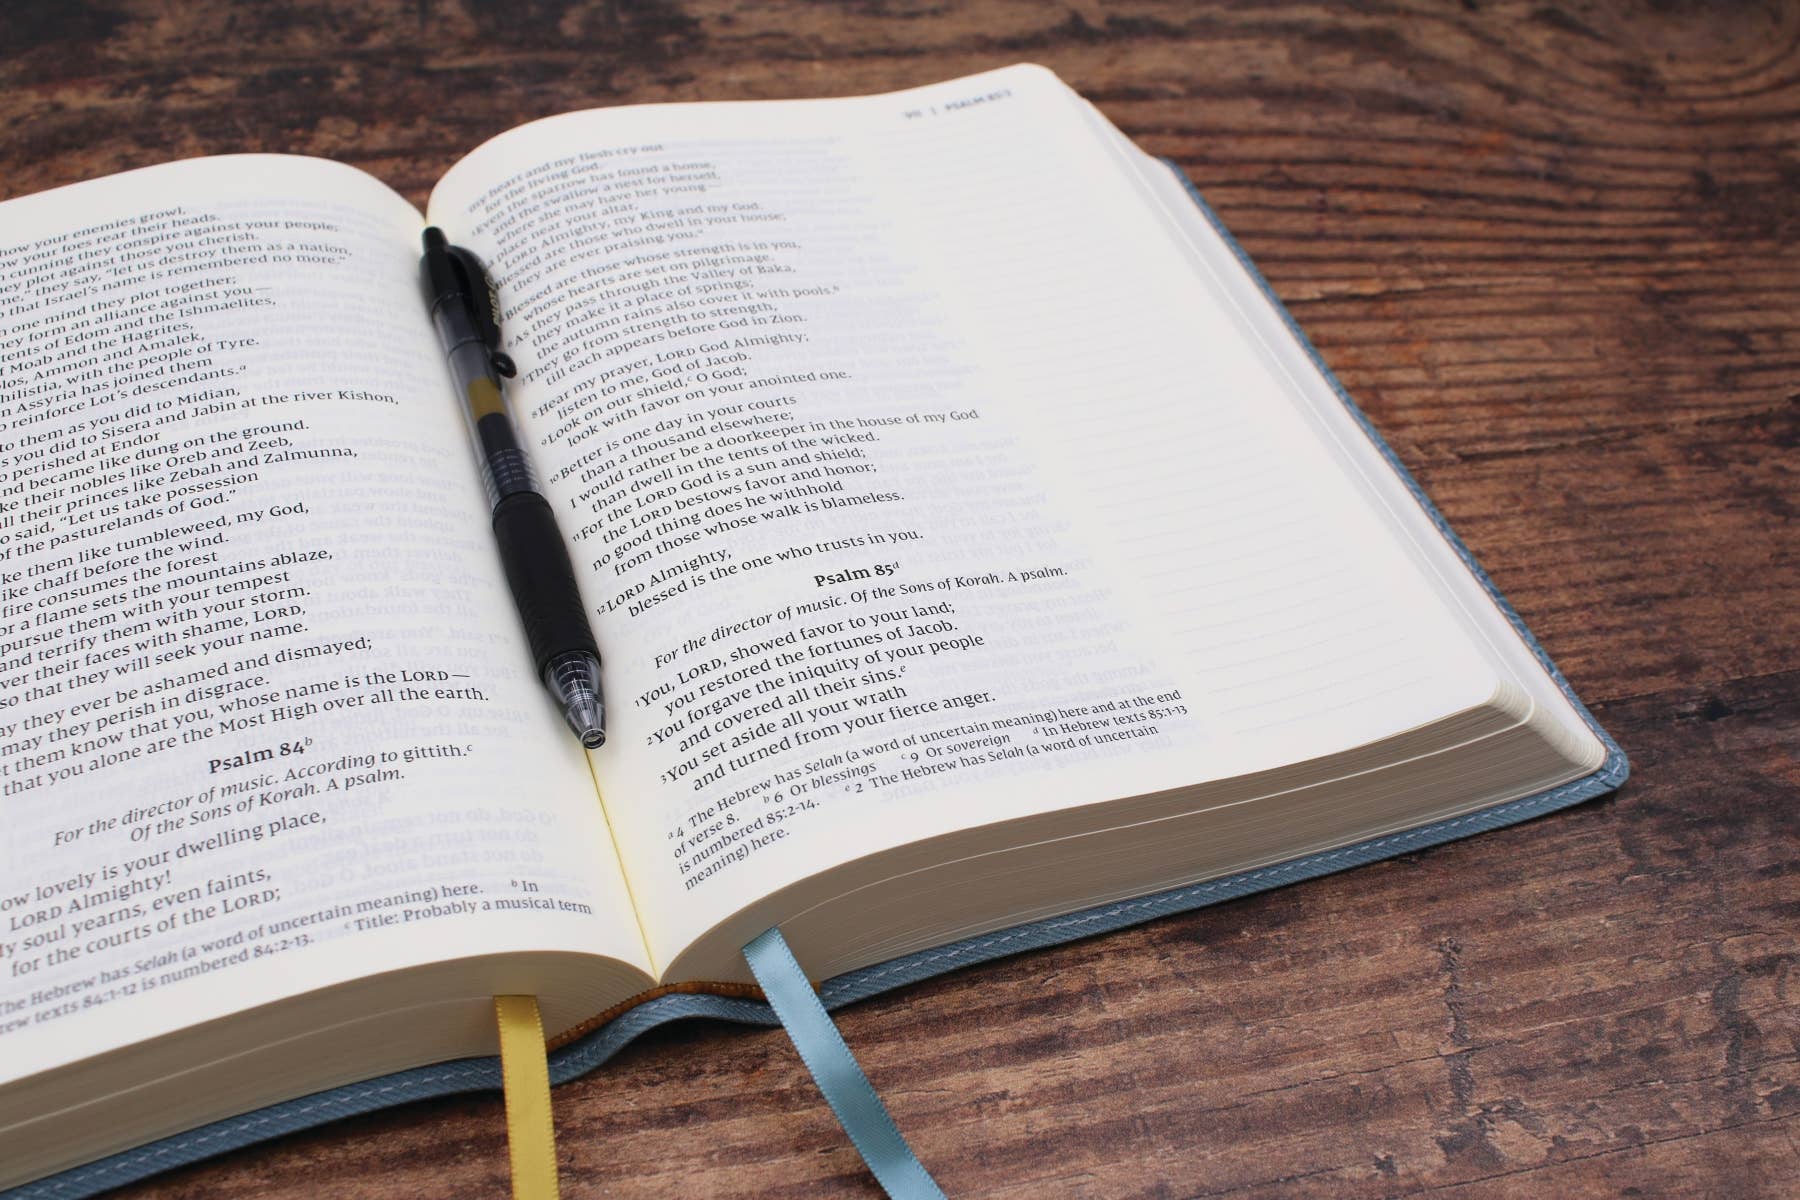 how your enemies growl,
how your foes rear their heads.
cunning they conspire against your people;
they plot against those you cherish.
"they say, "let us destroy them as a nation,
that Israel's name is remembered no more."
one mind they plot together;
they form an alliance against you—
tents of Edom and the Ishmaelites,
of Moab and the Hagrites,
Ammon and Amalek,
with the people of Tyre.
Assyria has joined them
reinforce Lot's descendants.a
to them as you did to Midian,
as you did to Sisera and Jabin at the river Kishon,
perished at Endor
and became like dung on the ground.
their nobles like Oreb and Zeeb,
all their princes like Zebah and Zalmunna,
said, "Let us take possession
of the pasturelands of God."
them like tumbleweed, my God,
like chaff before the wind.
fire consumes the forest
or a flame sets the mountains ablaze,
pursue them with your tempest
and terrify them with your storm.
their faces with shame, LORD,
so that they will seek your name.
they ever be ashamed and dismayed;
may they perish in disgrace.
them know that you, whose name is the LORD—
that you alone are the Most High over all the earth.
Psalm 84b
For the director of music. According to gittith.c
Of the Sons of Korah. A psalm.
ow lovely is your dwelling place,
LORD Almighty!
My soul yearns, even faints,
for the courts of the LORD;
The Hebrew has Selah (a word of uncertain meaning) here. b In
rew texts 84:1-12 is numbered 84:2-13. c Title: Probably a musical term
PSALM 85:3
my heart and my flesh cry out
for the living God.
Even the sparrow has found a home,
and the swallow a nest for herself,
where she may have her young—
a place near your altar,
LORD Almighty, my King and my God.
Blessed are those who dwell in your house;
they are ever praising you.a
Blessed are those whose strength is in you,
whose hearts are set on pilgrimage.
6 As they pass through the Valley of Baka,
they make it a place of springs;
the autumn rains also cover it with pools.b
7 They go from strength to strength,
till each appears before God in Zion.
8 Hear my prayer, LORD God Almighty;
listen to me, God of Jacob.
9 Look on our shield,c O God;
look with favor on your anointed one.
10 Better is one day in your courts
than a thousand elsewhere;
I would rather be a doorkeeper in the house of my God
than dwell in the tents of the wicked.
11 For the LORD God is a sun and shield;
the LORD bestows favor and honor;
no good thing does he withhold
from those whose walk is blameless.
12 LORD Almighty,
blessed is the one who trusts in you.
Psalm 85d
For the director of music. Of the Sons of Korah. A psalm.
1 You, LORD, showed favor to your land;
you restored the fortunes of Jacob.
2 You forgave the iniquity of your people
and covered all their sins.e
3 You set aside all your wrath
and turned from your fierce anger.
a 4 The Hebrew has Selah (a word of uncertain meaning) here and at the end
of verse 8. b 6 Or blessings c 9 Or sovereign d In Hebrew texts 85:1-13
is numbered 85:2-14. e 2 The Hebrew has Selah (a word of uncertain
meaning) here.